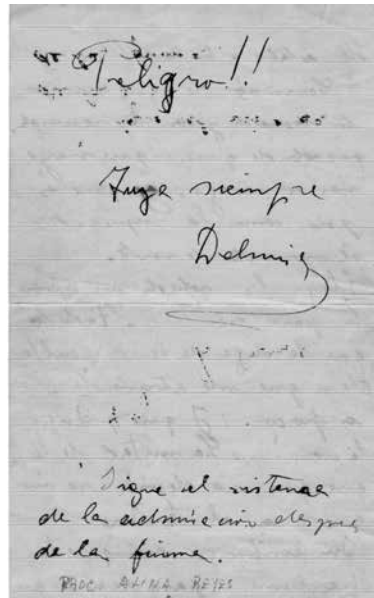 Peligro!!
Tuya siempre
Delmira
Sigue el sistema
de la admiración despues
de la firma.
PROC. AMINA REYES